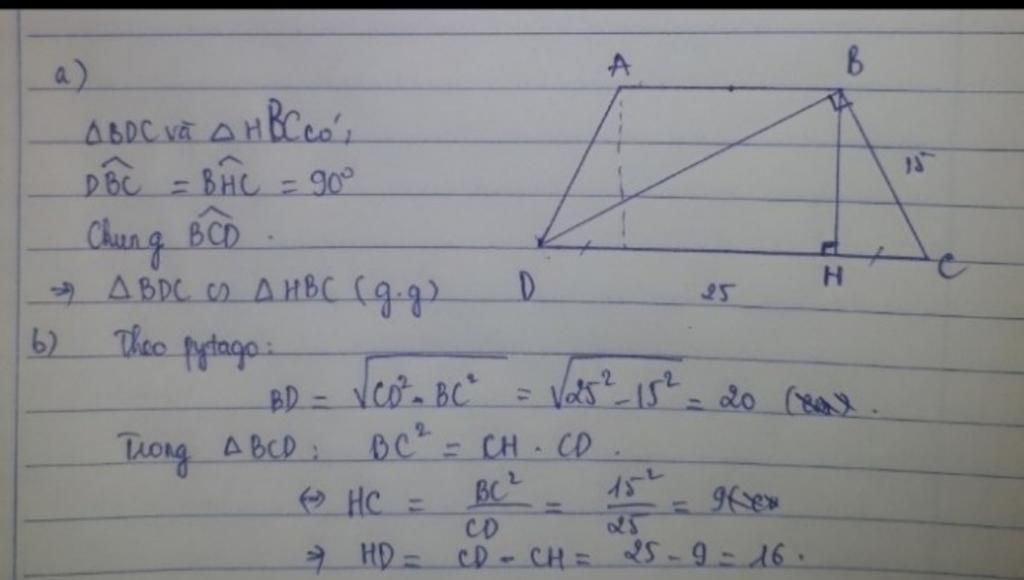 a)
ΔBDC và ΔHBC có,
DBC = BHC = 90°
Chung BCD.
⇒ ΔBDC ∽ ΔHBC (g.g)
A
B
15
D
H
C
25
b) Theo pytago:
BD = √(CD² - BC²) = √(25² - 15²) = 20
Trong ΔBCD: BC² = CH . CD.
⇔ HC = BC²/CD = 15²/25 = 9
⇒ HD = CD - CH = 25 - 9 = 16.